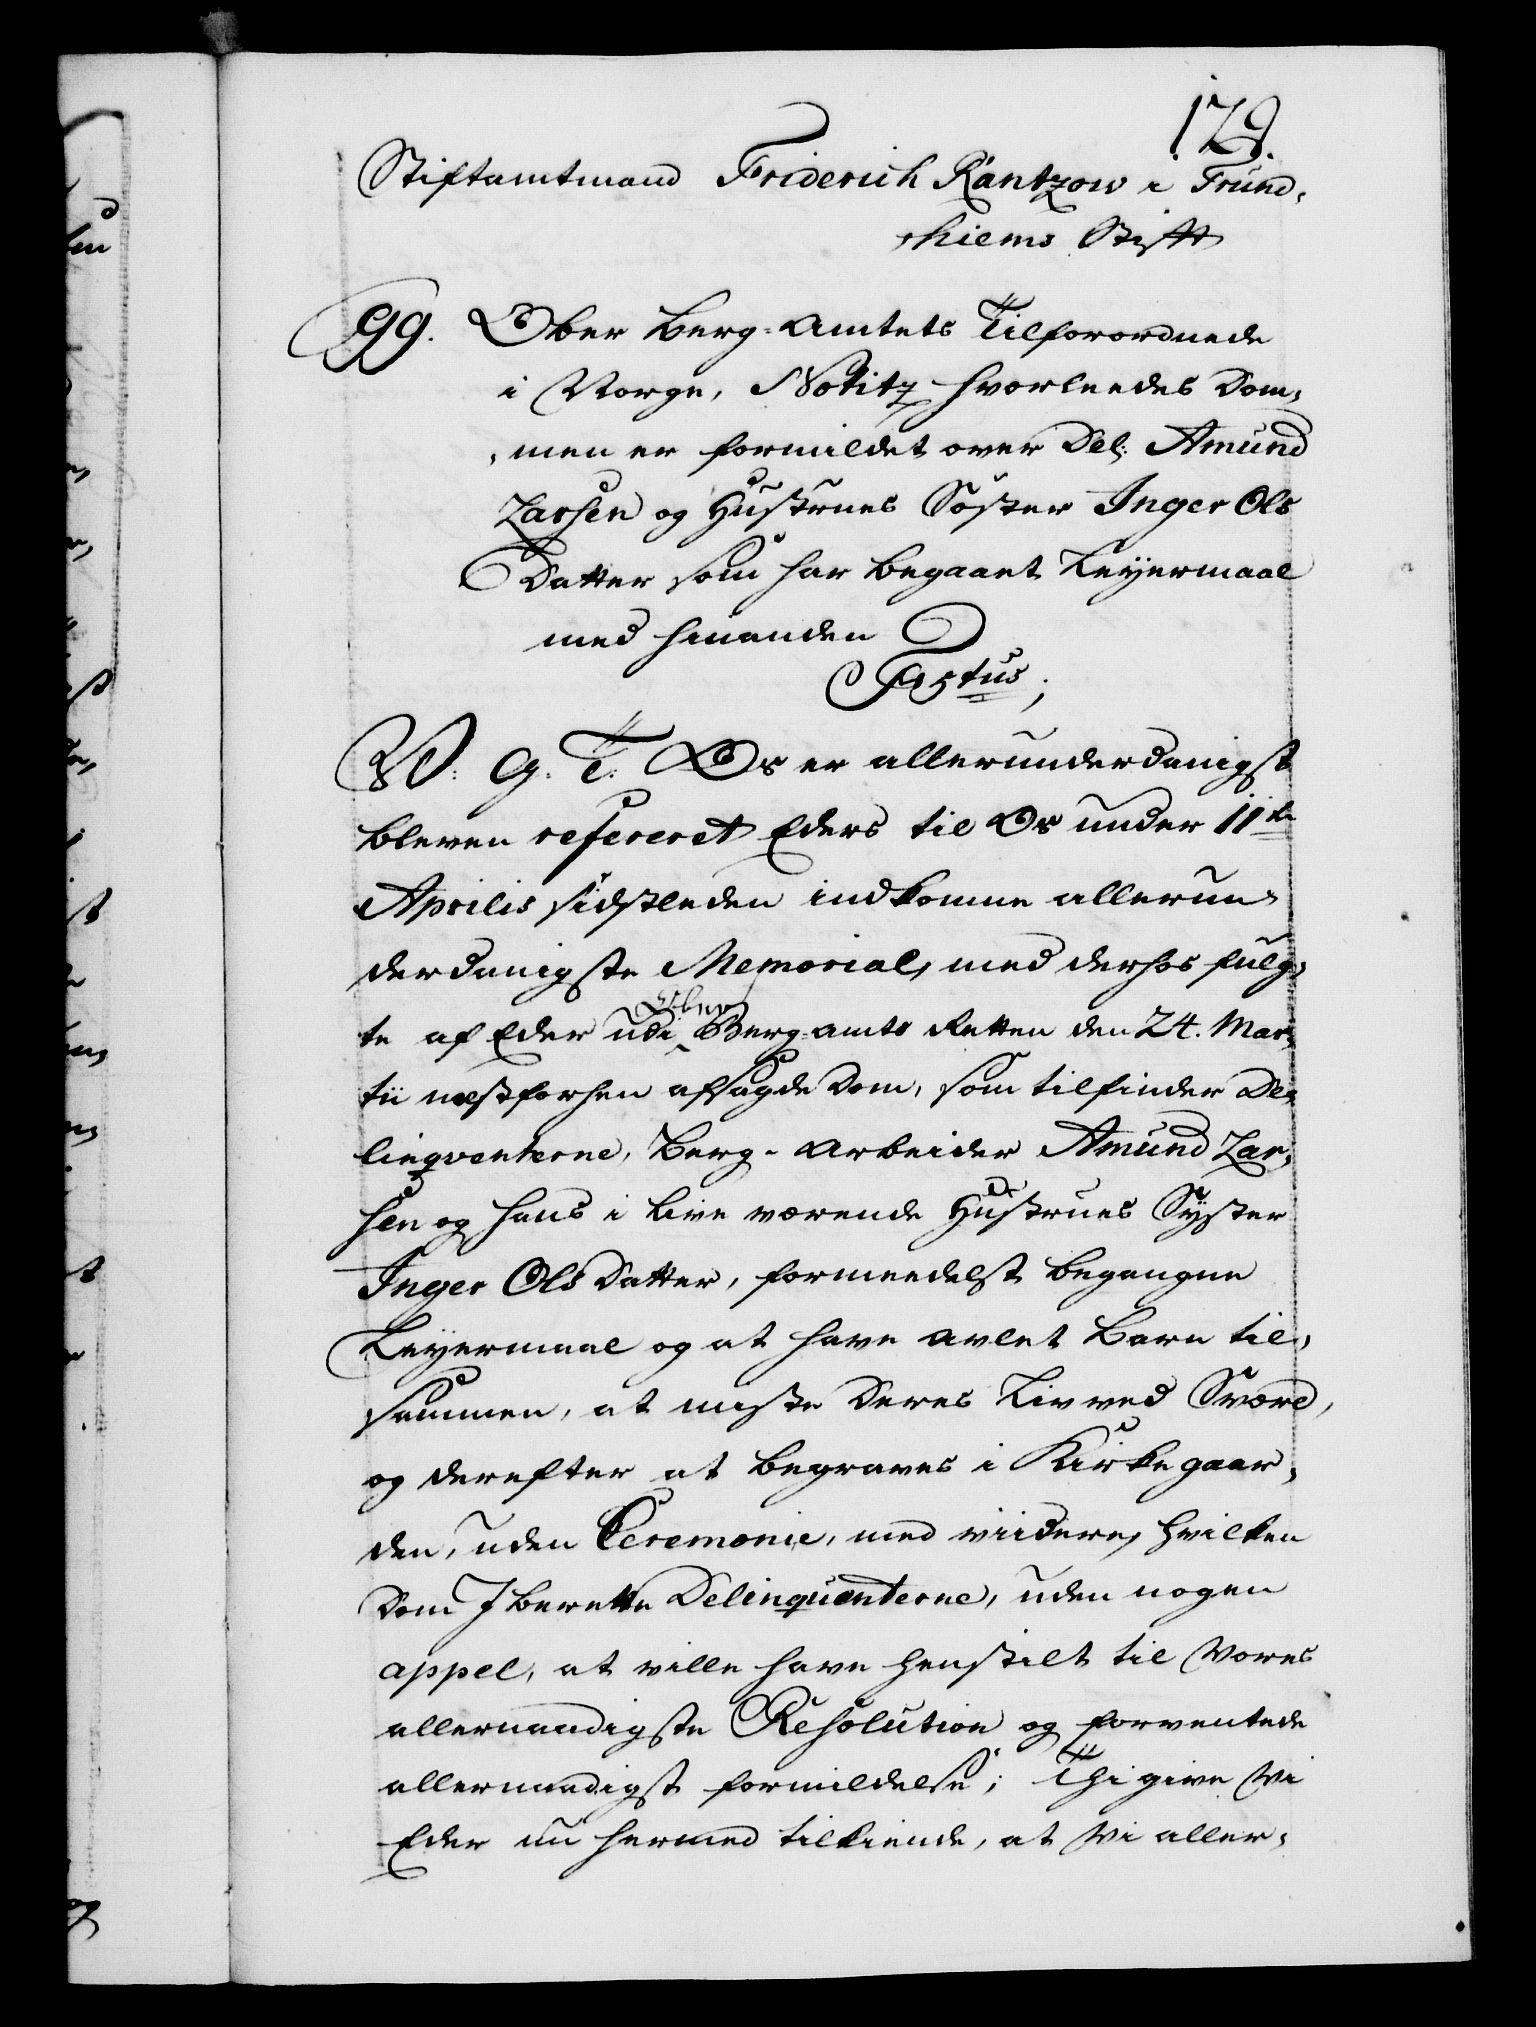 179.
Stiftamtmand Friderich Rantzow i Trund,
,hiems Stift
99. Ober Berg-Amtets Tilforordnede
i Norge, Notitz hvorleedes Dom,
,men er formildet over Del: Amund
Larsen og Hustrues Søster Inger Ols
Datter som har begaaet Leyermaal
med hinanden
Festus;
W: G: T: Os er allerunderdanigst
bleven refereret Eders til Os under 11te
Aprilis sidstleden indkomne allerun-
derdanigste Memorial, med derhos fulg,
te af Eder udi Ober Berg-Amts Retten den 24. Mar,
tii næstforhen afsagde Dom, som tilfinder De,
linqventerne, Berg-Arbeider Amund Lar,
sen og hans i Live værende Hustrues Syster
Inger Ols Datter, formeedelst begangne
Leyermaal og at have avlet Barn til,
sammen, at miste Deres Liv ved Sværd,
og derefter at begraves i Kirkegaar,
den, uden Ceremonie, med viidere, hvilken
Dom I berette Delinquenterne, uden nogen
appel, at ville have henstilt til Vores
allernaadigste Resolution og forventede
allernaadigst formildelse; Thi give Vi
Eder nu hermed tilkiende, at Vi aller,